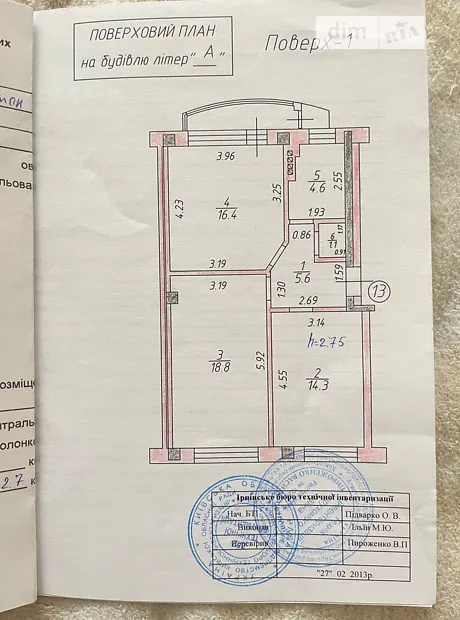 ПОВЕРХОВИЙ ПЛАН
на будівлю літер " А "
Поверх-1
dim RIA
их
ов
льова
розміщ
нтраль
олонко
к
2.7 к
3.96
4.23
4
16.4
3.25
5
4.6
2.55
1.93
0.86
6
1.1
1.17
0.91
3.19
3.19
1
5.6
1.59
1.30
2.69
13
3.14
h=2.75
3
18.8
5.92
4.55
2
14.3
Ірпінське бюро технічної інвентаризації
Нач. БТІ Підварко О. В.
Виконав Ільїн М.Ю.
Перевірив Пироженко В.П
"27" 02 2013р.